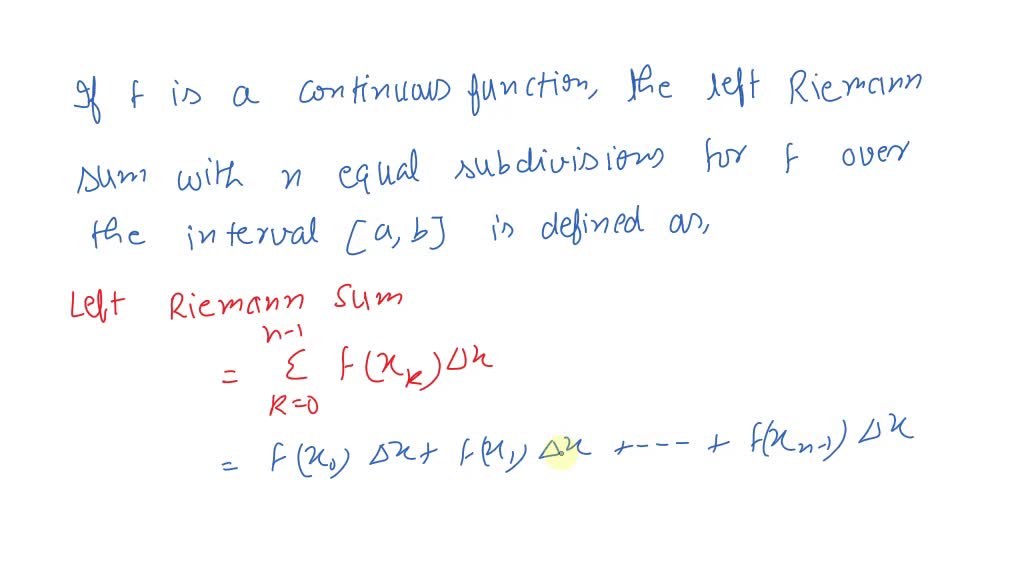 If f is a continuous function, the left Riemann
sum with n equal subdivisions for f over
the interval [a, b] is defined as,
Left Riemann Sum
= n-1 Σ k=0 f(x_k) Δx
= f(x₀) Δx + f(x₁) Δx + ---- + f(x_{n-1}) Δx